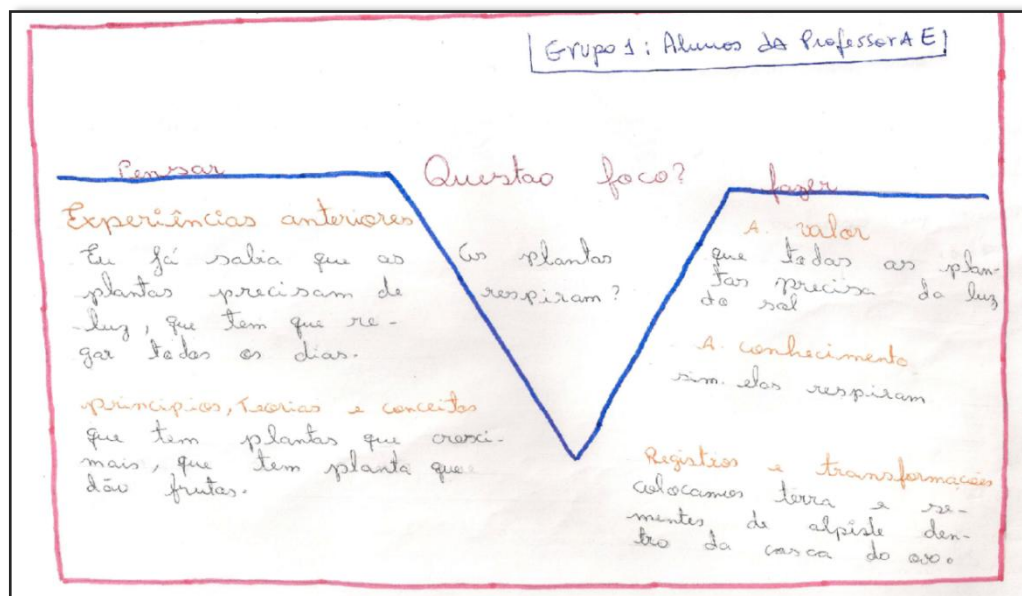 Grupo 1: Alunos da Professora E
Pensar
Questão foco?
fazer
Experiências anteriores
Eu já sabia que as
plantas precisam de
luz, que tem que re-
gar todos os dias.
principios, Teorias e conceitos
que tem plantas que cresci-
mais, que tem planta que
dão frutas.
As plantas
respiram?
A. valor
que todas as plan-
tas precisa da luz
do sol
A. conhecimento
sim. elas respiram
Registros e transformações
colocamos terra e se-
mentes de alpiste den-
tro da casca do ovo.